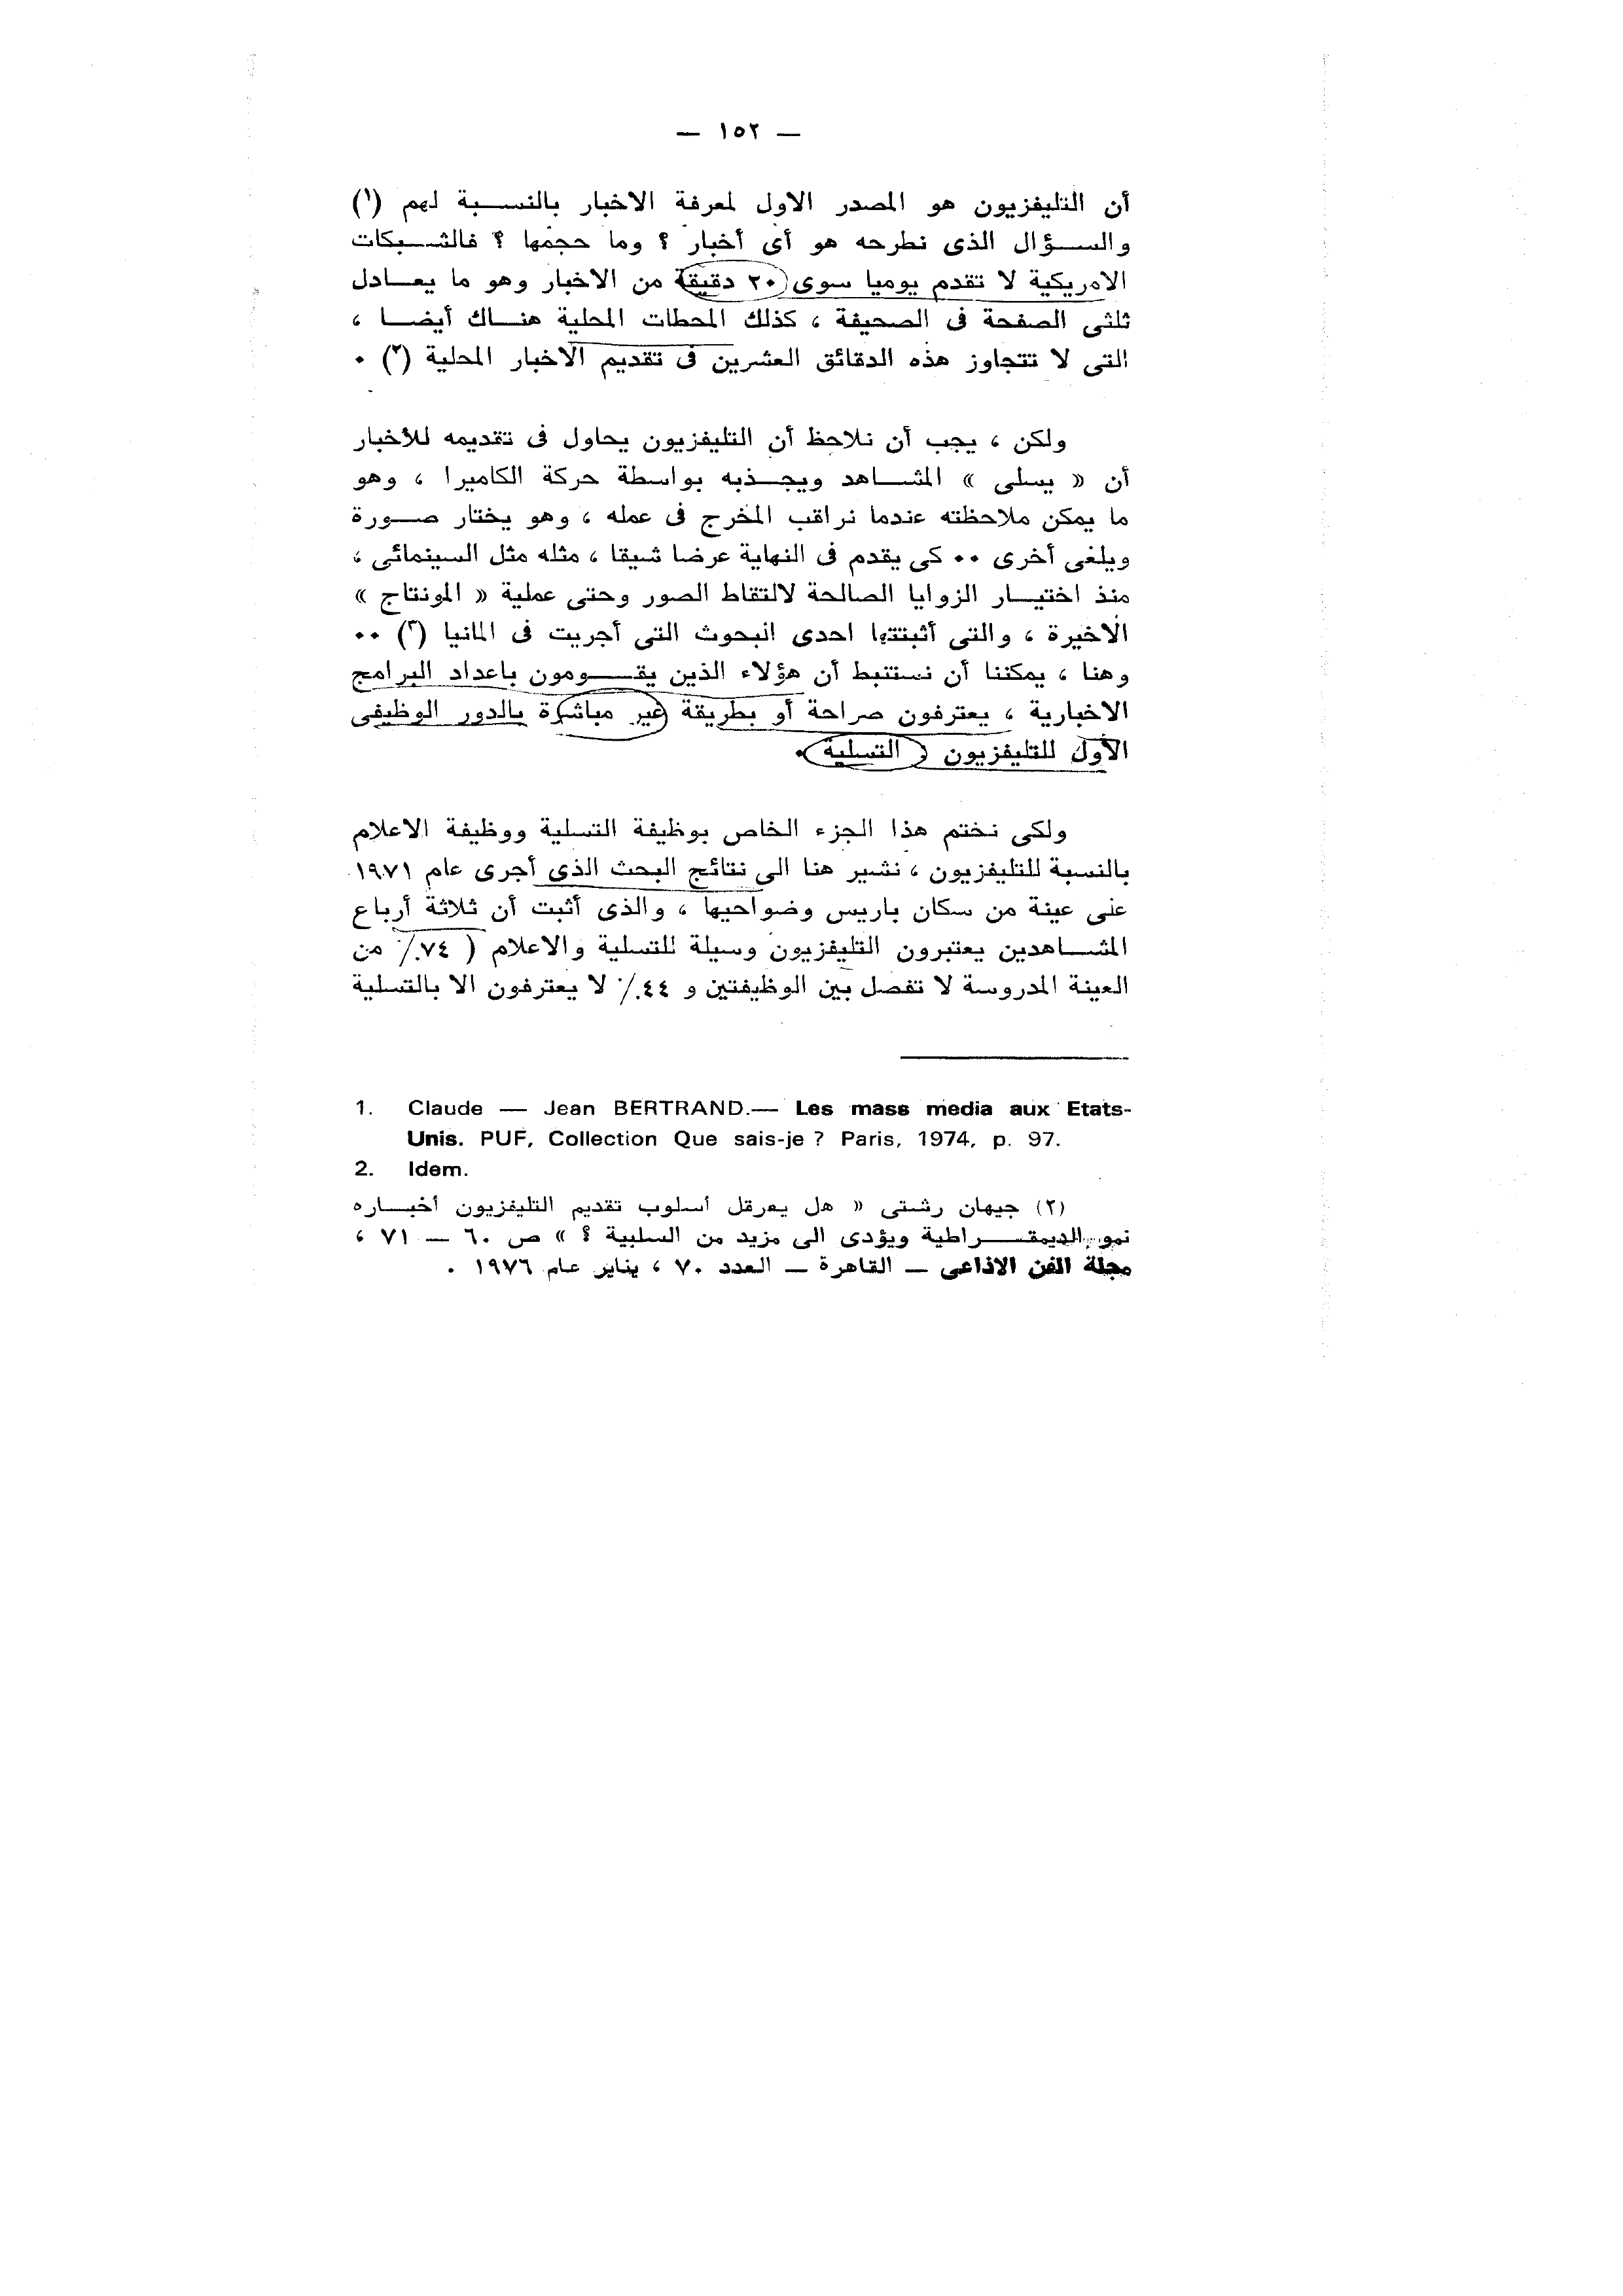 — ١٥٢ —
أن التليفزيون هو المصدر الاول لمعرفة الاخبار بالنسبة لهم (١)
والسؤال الذى نطرحه هو أى أخبار ؟ وما حجمها ؟ فالشبكات
الامريكية لا تقدم يوميا سوى ٢٠ دقيقة من الاخبار وهو ما يعادل
ثلثى الصفحة فى الصحيفة ، كذلك المحطات المحلية هناك أيضا ،
التى لا تتجاوز هذه الدقائق العشرين فى تقديم الاخبار المحلية (٢) ٠
ولكن ، يجب أن نلاحظ أن التليفزيون يحاول فى تقديمه للأخبار
أن « يسلى » المشاهد ويجذبه بواسطة حركة الكاميرا ، وهو
ما يمكن ملاحظته عندما نراقب المخرج فى عمله ، وهو يختار صورة
ويلغى أخرى ٠٠ كى يقدم فى النهاية عرضا شيقا ، مثله مثل السينمائى ،
منذ اختيار الزوايا الصالحة لالتقاط الصور وحتى عملية « المونتاج »
الاخيرة ، والتى أثبتتها احدى البحوث التى أجريت فى المانيا (٣) ٠٠
وهنا ، يمكننا أن نستنبط أن هؤلاء الذين يقومون باعداد البرامج
الاخبارية ، يعترفون صراحة أو بطريقة غير مباشرة بالدور الوظيفى
الأول للتليفزيون ( التسلية ٠
ولكى نختم هذا الجزء الخاص بوظيفة التسلية ووظيفة الاعلام
بالنسبة للتليفزيون ، نشير هنا الى نتائج البحث الذى أجرى عام ١٩٧١
على عينة من سكان باريس وضواحيها ، والذى أثبت أن ثلاثة أرباع
المشاهدين يعتبرون التليفزيون وسيلة للتسلية والاعلام ( ٧٤٪ من
العينة المدروسة لا تفصل بين الوظيفتين و ٤٤٪ لا يعترفون الا بالتسلية
1. Claude — Jean BERTRAND.— Les mass media aux Etats-
Unis. PUF, Collection Que sais-je ? Paris, 1974, p. 97.
2. Idem.
(٣) جيهان رشتى « هل يعرقل أسلوب تقديم التليفزيون أخباره
نمو الديمقراطية ويؤدى الى مزيد من السلبية ؟ » ص ٦٠ — ٧١ ،
مجلة الفن الاذاعى — القاهرة — العدد ٧٠ ، يناير عام ١٩٧٦ ٠